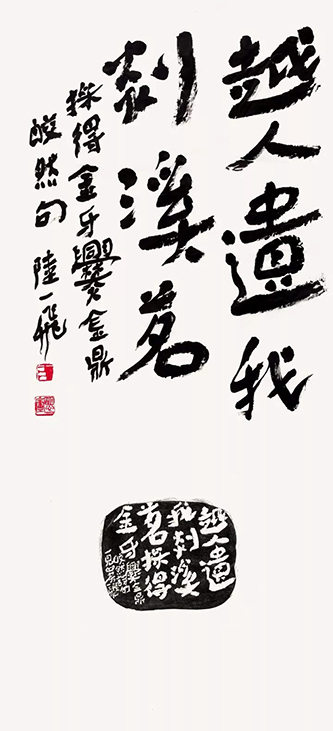 越人遺我
剡溪茗
採得金牙爨金鼎
皎然句 陸一飛
越人遺
我剡溪
茗採得
金牙爨金鼎